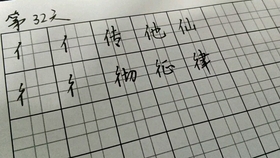 第32天
亻 亻 传 他 仙
彳 彳 彻 征 律